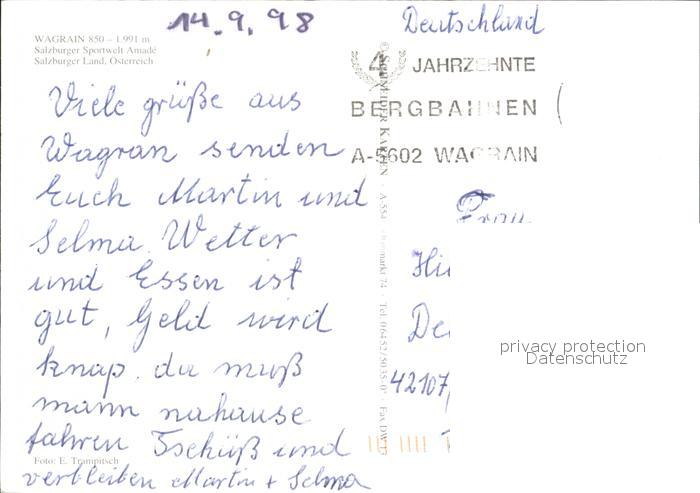 14.9.98
Deutschland
WAGRAIN 850 – 1.991 m
Salzburger Sportwelt Amadé
Salzburger Land, Österreich
4 JAHRZEHNTE
BERGBAHNEN
A-5602 WAGRAIN
Viele grüße aus
Wagran senden
Euch Martin und
Selma. Wetter
und Essen ist
gut, Geld wird
knap. da muß
mann nahause
fahren Tschüß und
verbleiben Martin + Selma
Foto: E. Trampitsch
SCHNEIDER KARTEN · A-554 74 · Tel. 06452/5035-0 · Fax DW
Frau
42107
privacy protection
Datenschutz